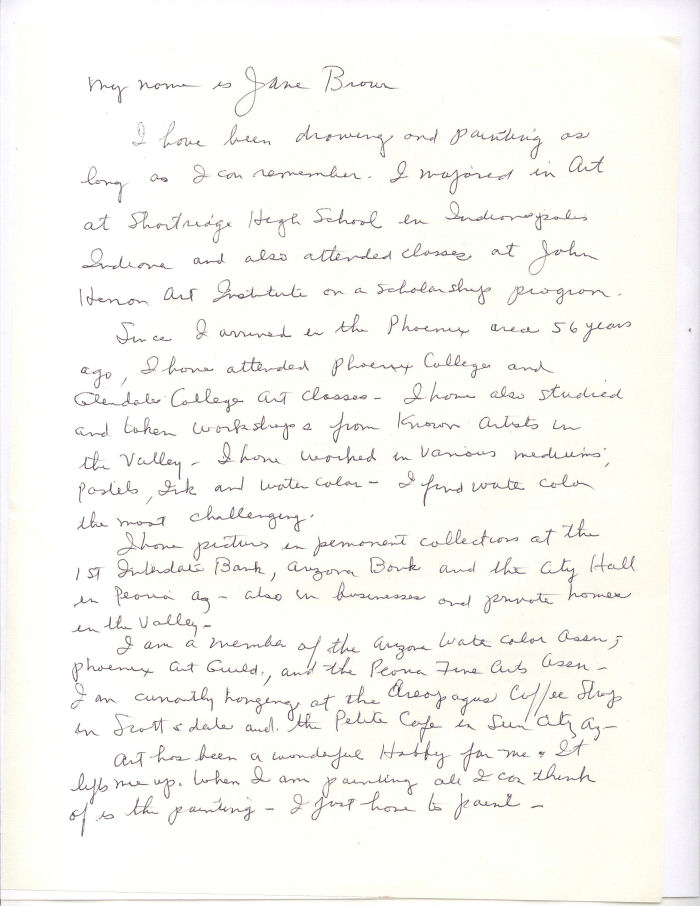 My name is Jane Brown
I have been drawing and painting as
long as I can remember. I majored in Art
at Shortridge High School in Indianapolis
Indiana and also attended classes at John
Herron Art Institute on a scholarship program.
Since I arrived in the Phoenix area 56 years
ago, I have attended Phoenix College and
Glendale College Art Classes - I have also studied
and taken workshops from Known Artists in
the Valley - I have worked in various mediums,
Pastels, Ink and water color - I find wate color
the most challenging.
I have picturs in permanent collections at the
1ST Interstate Bank, Arizona Bank and the City Hall
in Peoria Az - also in businesses and private homes
in the Valley -
I am a member of the Arizona Wate color Assn,
Phoenix Art Guild, and the Peoria Fine Arts Assn -
I am currently hanging at the Areopagus Coffee Shop
in Scottsdale and the Petite Cafe in Sun City Az -
Art has been a wonderful Hobby for me. It
lifts me up. When I am painting all I can think
of is the painting - I just have to paint -